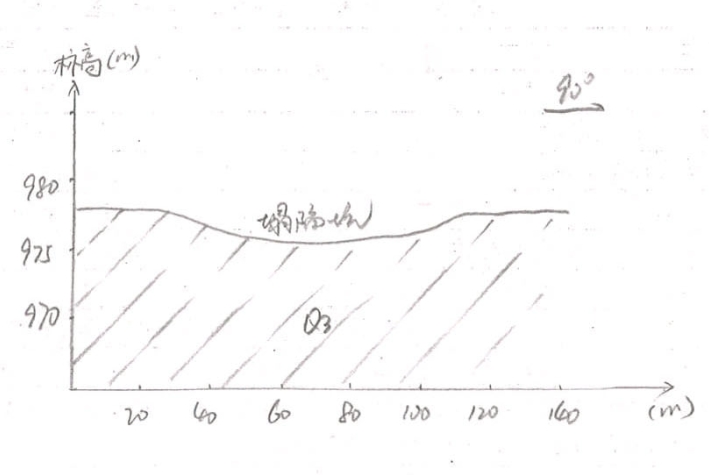 标高(m)
90°
980
塌陷坑
975
970
Q3
20 40 60 80 100 120 140 (m)